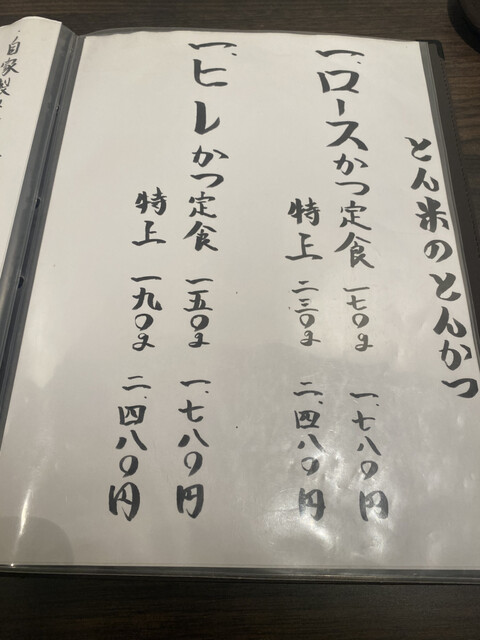 とん米のとんかつ
一、ロースかつ定食 一七〇g 一、七八〇円
特上 二三〇g 二、四八〇円
一、ヒレかつ定食 一五〇g 一、七八〇円
特上 一九〇g 二、四八〇円
自家製